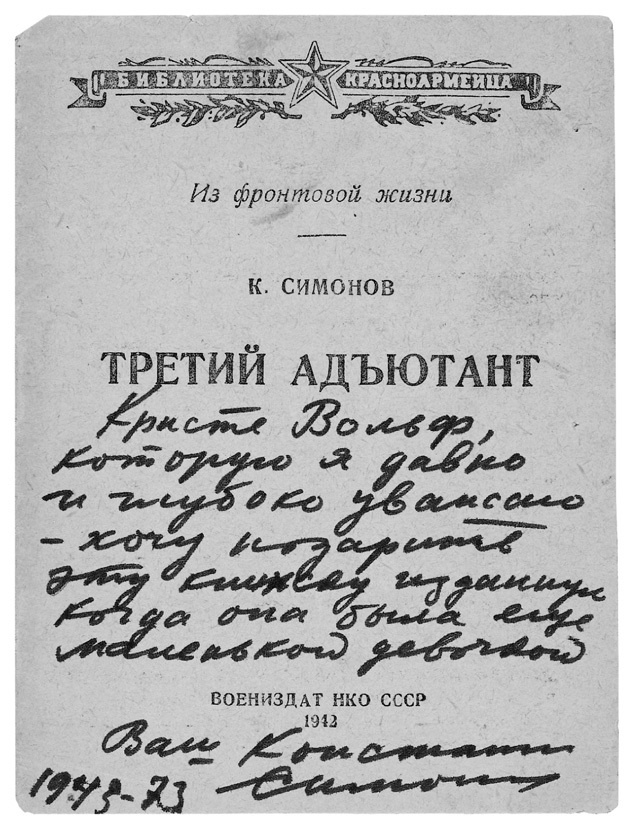 БИБЛИОТЕКА КРАСНОАРМЕЙЦА
Из фронтовой жизни
К. СИМОНОВ
ТРЕТИЙ АДЪЮТАНТ
Кристе Вольф,
которую я давно
и глубоко уважаю
– хочу подарить
эту книжку изданную
когда она была еще
маленькой девочкой
ВОЕНИЗДАТ НКО СССР
1942
Ваш Константин
Симонов
1943-73